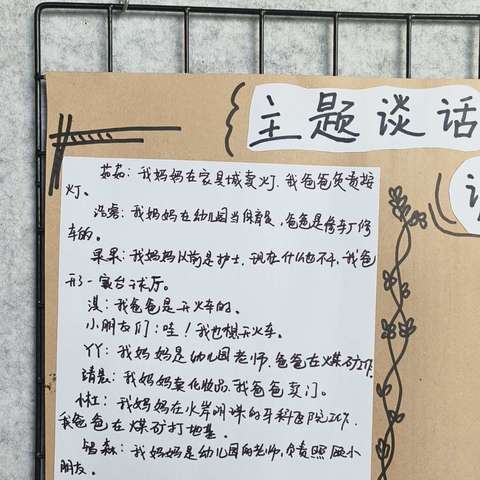 主题谈话
茹茹：我妈妈在家具城卖灯，我爸爸负责接
灯。
我妈妈在幼儿园当保育员，爸爸是修车厂修
车的。
果果：我妈妈以前是护士，现在什么也不干，我爸
开了一家台球厅。
淇：我爸爸是开火车的。
小朋友们：哇！我也想开火车。
丫丫：我妈妈是幼儿园老师，爸爸在煤矿工作。
我妈妈卖化妆品，我爸爸卖门。
我妈妈在水岸明珠的牙科医院工作，
我爸爸在煤矿打地基。
森：我妈妈是幼儿园的老师，负责照顾小
朋友。